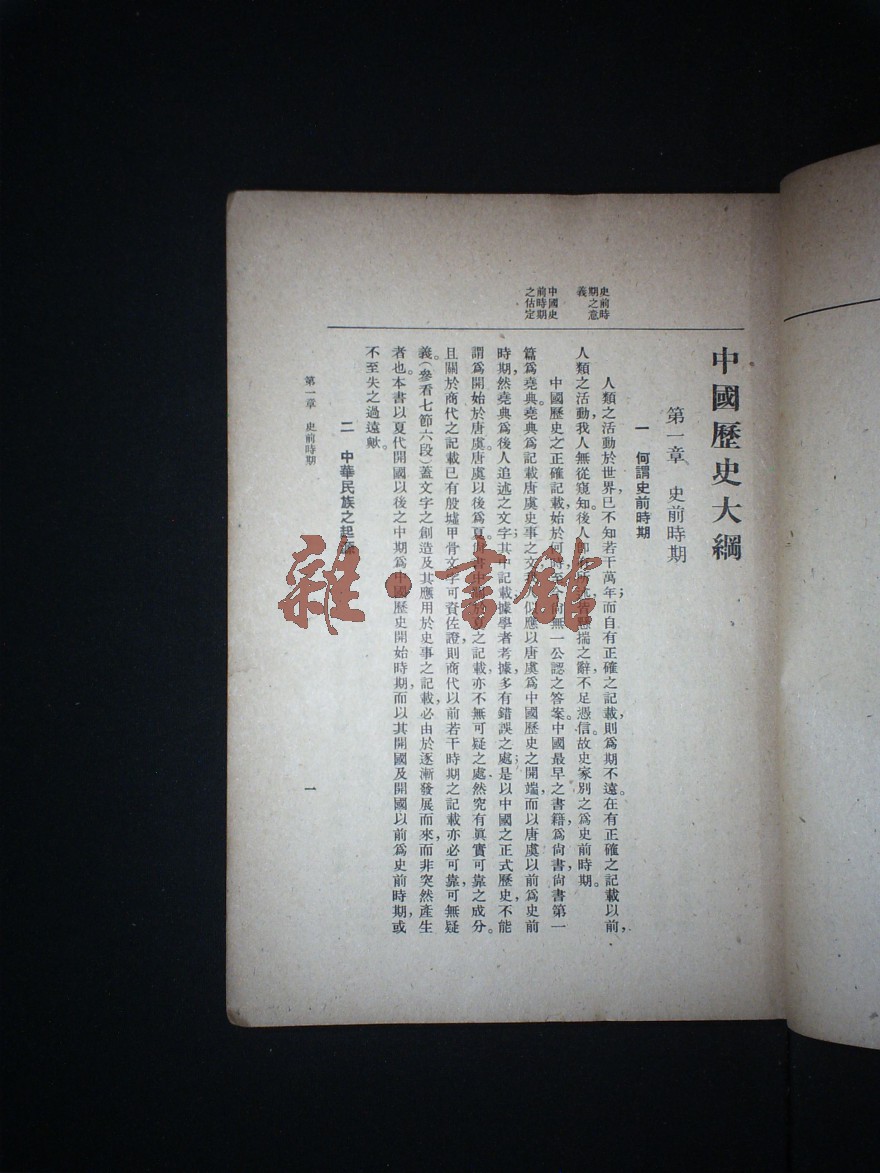 中國歷史大綱
第一章　史前時期
一　何謂史前時期
史前時
期之意
義
人類之活動於世界，已不知若干萬年；而自有正確之記載，則爲期不遠。在有正確之記載以前，
人類之活動，我人無從窺知，後人揣之辭，不足憑信。故史家別之爲史前時期。
中國史
前時期
之估定
中國歷史之正確記載，始於何時，至今尚無一公認之答案。中國最早之書籍，爲尚書，尚書第一
篇爲堯典。堯典爲記載唐虞史事之文，似應以唐虞爲中國歷史之開端，而以唐虞以前爲史前
時期，然堯典爲後人追述之文字；其中記載，據學者考據，多有錯誤之處；是以中國之正式歷史，不能
謂爲開始於唐虞。唐虞以後爲夏，之記載，亦不無可疑之處，然究有眞實可靠之成分。
且關於商代之記載，已有殷墟甲骨文字，可資佐證，則商代以前若干時期之記載，亦必可靠，可無疑
義。（參看七節六段）蓋文字之創造及其應用於史事之記載，必由於逐漸發展而來，而非突然產生
者也。本書以夏代開國以後之中期，爲中國歷史開始時期，而以其開國及開國以前爲史前時期，或
不至失之過遠歟。
二　中華民族之起
第一章　史前時期
一
雜·書館